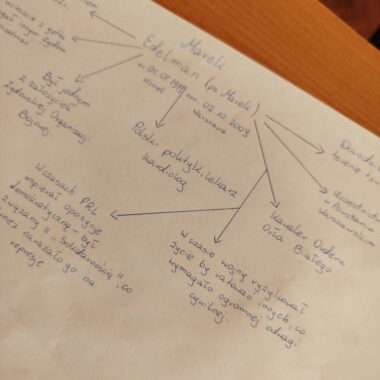 Marek
Edelman (ps. Marek)
ur. 01.01.1919 zm. 02.10.2009
Homel Warszawa
ucieczce z getta
innym Żydom
Był jednym
z założycieli
Żydowskiej Organizacji
Bojowej
Polski polityk, lekarz
kardiolog
terenie
Uczestniczył
w Powstaniu
Warszawskim
Kawaler Orderu
Orła Białego
W czasach PRL
wspierał opozycję
demokratyczną, był
związany z "Solidarnością", co
narażało go na
represje
W czasie wojny ryzykował
życie by ratować innych, co
wymagało ogromnej odwagi
cywilnej.